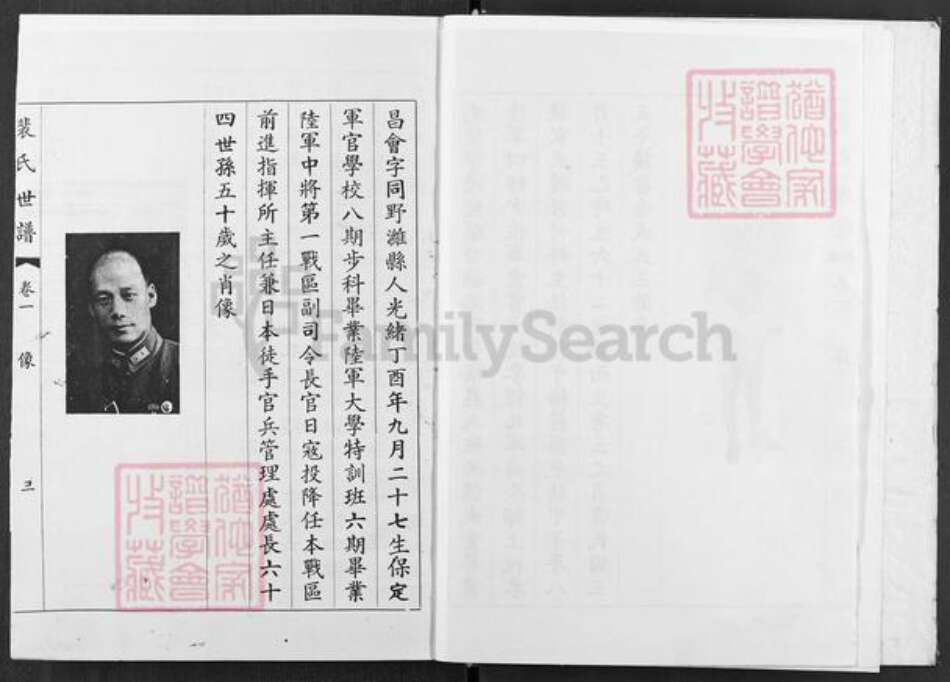 昌會字同野濰縣人光緒丁酉年九月二十七生保定
軍官學校八期步科畢業陸軍大學特訓班六期畢業
陸軍中將第一戰區副司令長官日寇投降任本戰區
前進指揮所主任兼日本徒手官兵管理處處長六十
四世孫五十歲之肖像
裴氏世譜
卷一
像
FamilySearch